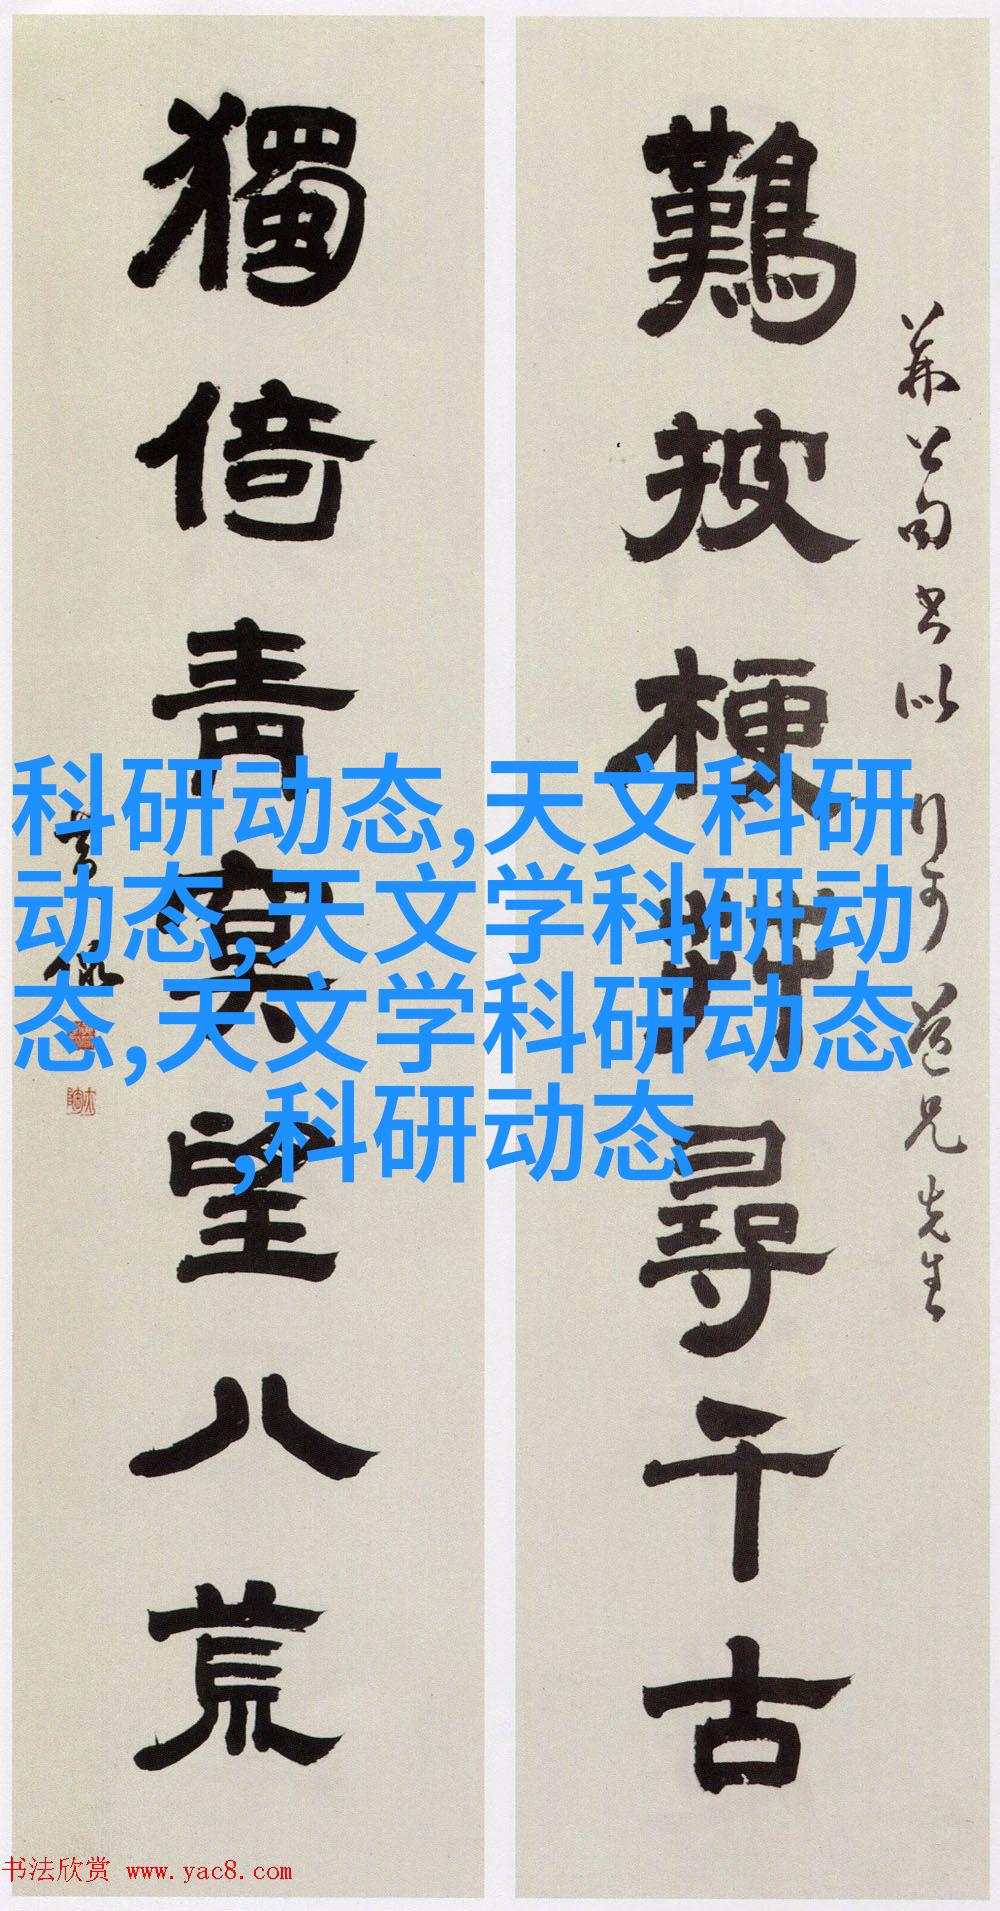 難披梗尋千古
公句書以
道兄先生
獨倚青冥望八荒
科研动态,天文科研
动态,天文学科研动
态,天文学科研动态
,科研动态
书法欣赏 www.yac8.com